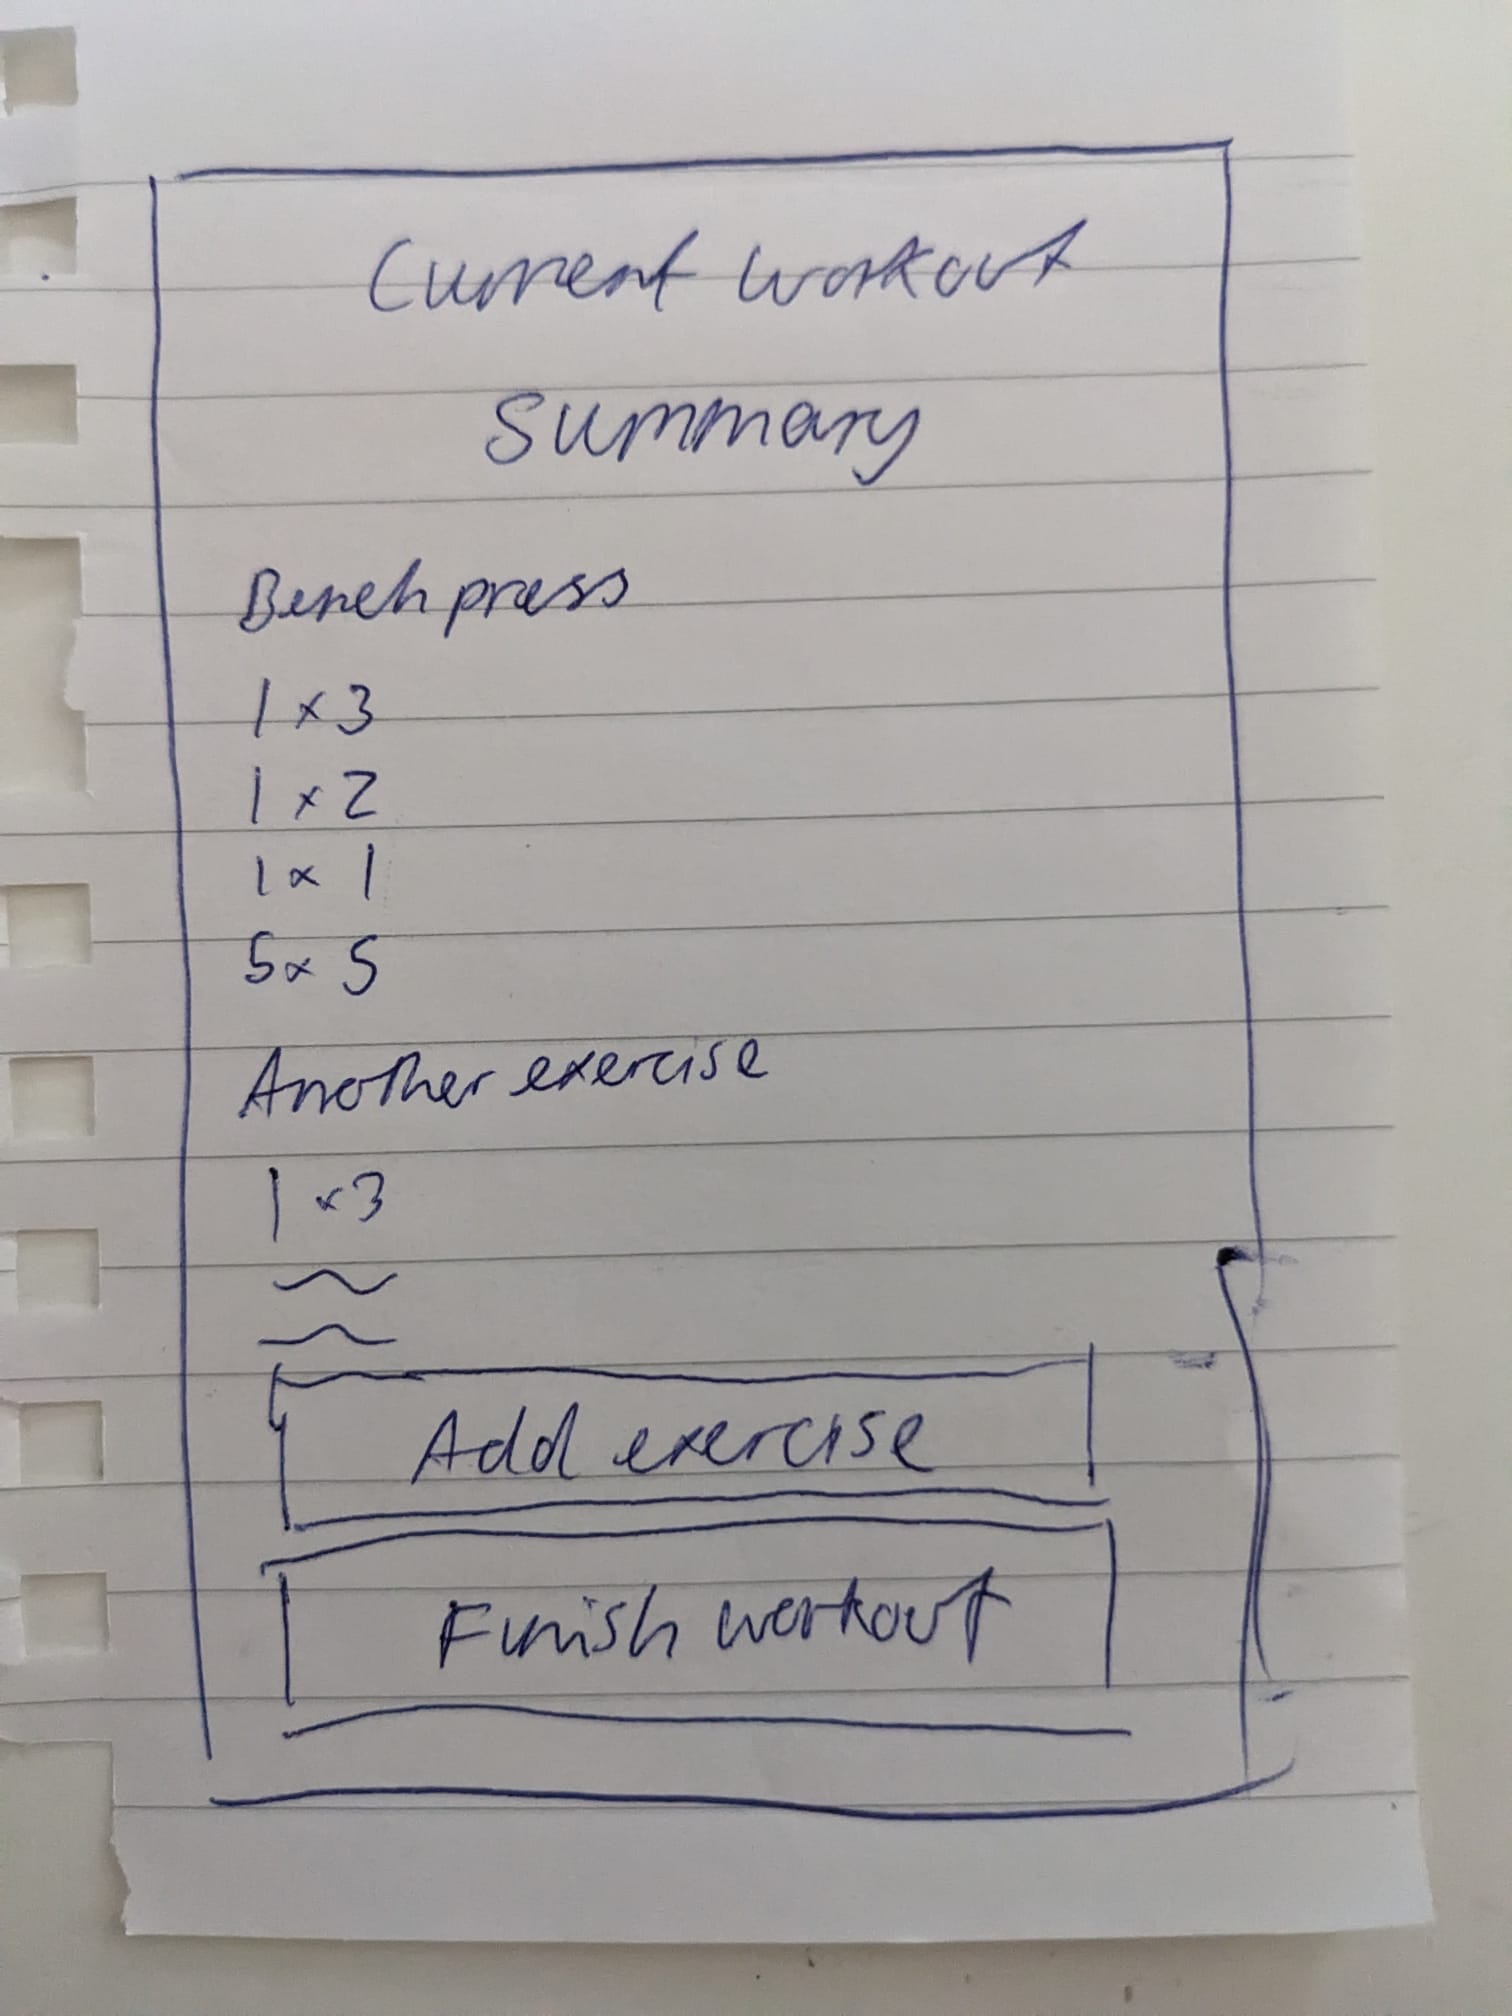 Current workout
Summary
Bench press
1 x 3
1 x 2
1 x 1
5 x 5
Another exercise
1 x 3
Add exercise
Finish workout